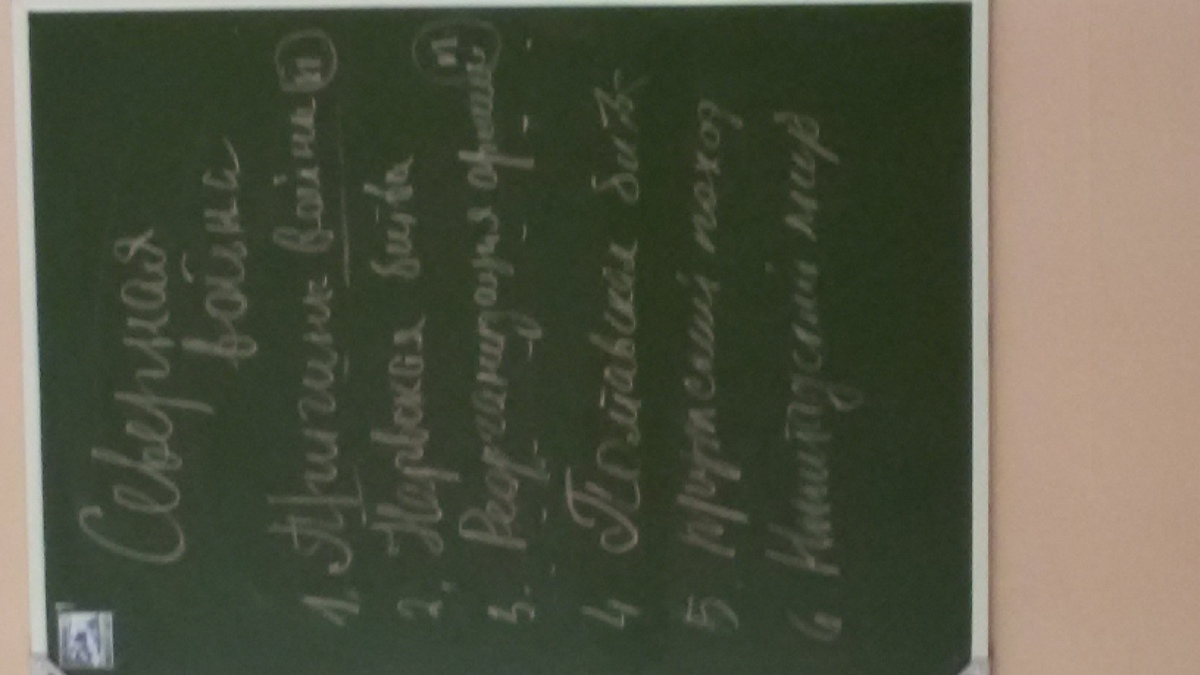 Северная
война
1. Причины войны И
2. Нарвская битва
3. Реорганизация армии И
4 Полтавская битв
5. Прутский поход
6 Ништадский мир